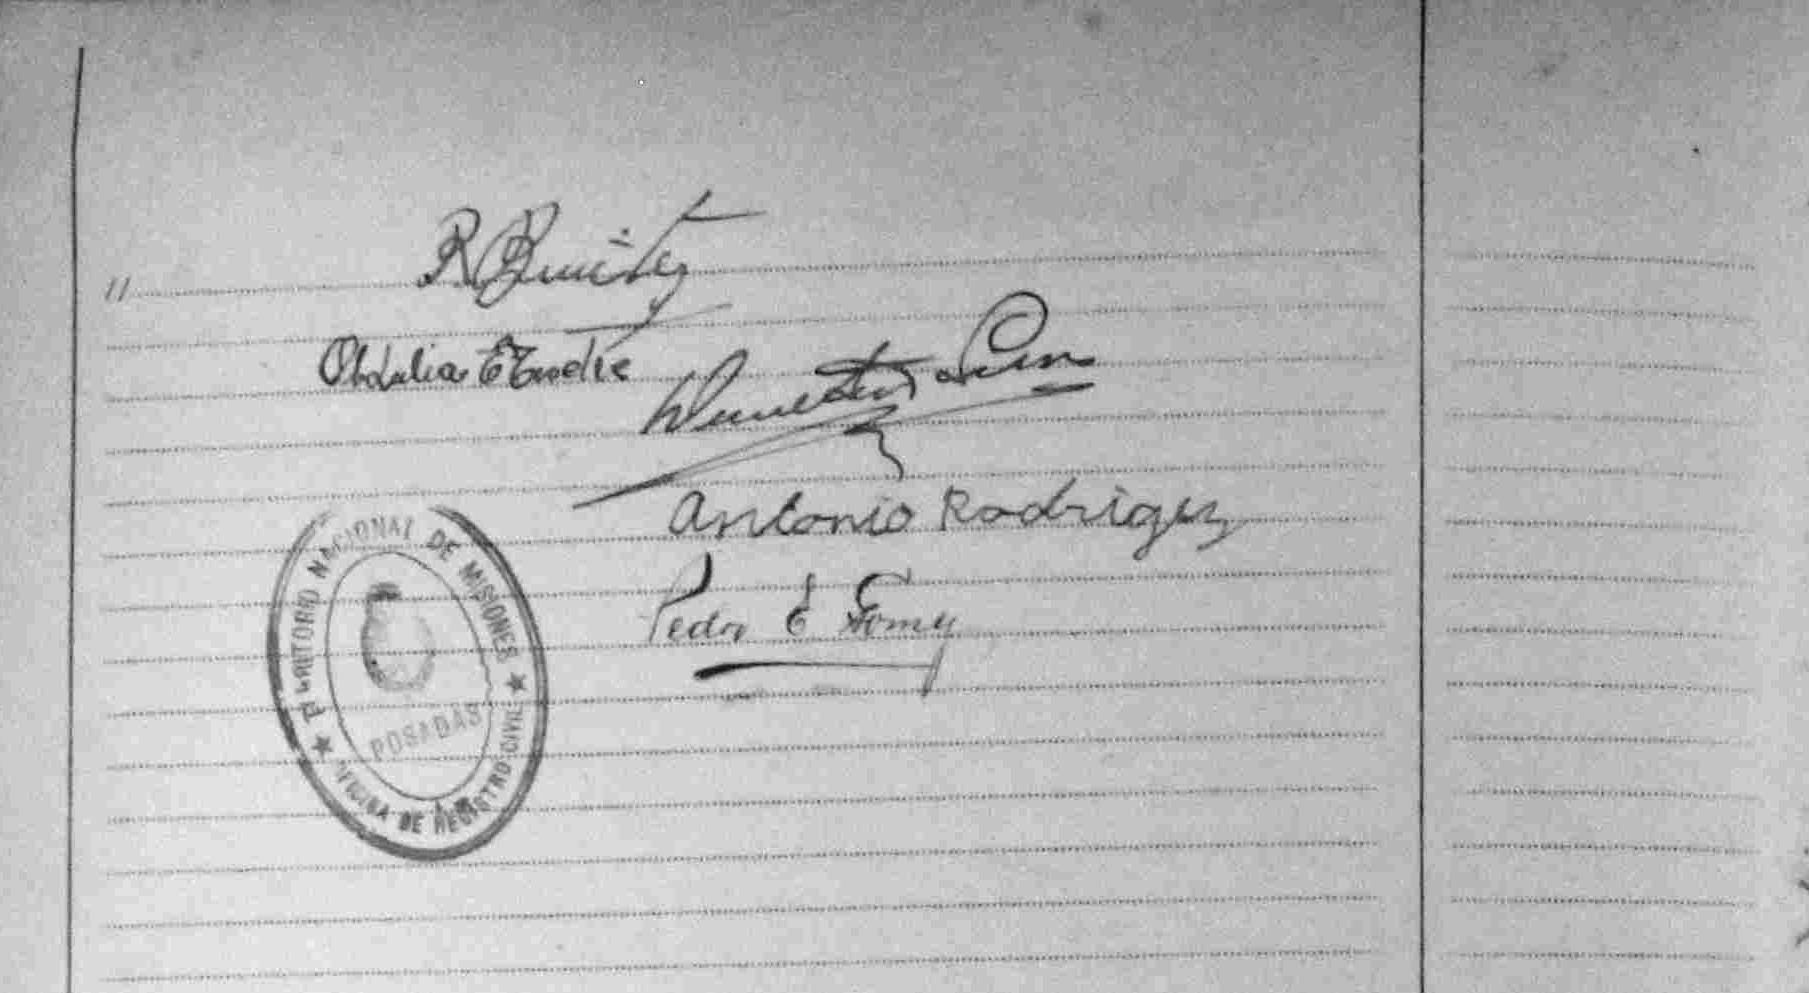 "
R. Benitez
Obdulia
Antonio Rodriguez
Pedro E Gomez
TERRITORIO NACIONAL DE MISIONES
POSADAS
OFICINA DE REGISTRO CIVIL